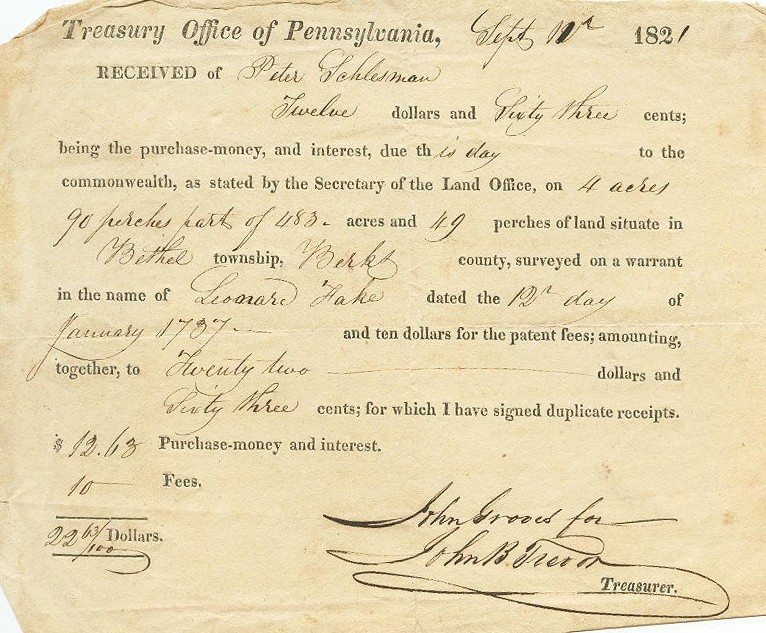 Treasury Office of Pennsylvania, Sept 11th 1821
RECEIVED of Peter Schlesman
Twelve dollars and Sixty three cents;
being the purchase-money, and interest, due this day to the
commonwealth, as stated by the Secretary of the Land Office, on 4 acres
90 perches part of 483 - acres and 49 perches of land situate in
Bethel township, Berks county, surveyed on a warrant
in the name of Leonard Fake dated the 12th day of
January 1737 - and ten dollars for the patent fees; amounting,
together, to Twenty two dollars and
Sixty three cents; for which I have signed duplicate receipts.
$ 12.63 Purchase-money and interest.
10 Fees.
22 63/100 Dollars.
John Groves for
John B Trevor
Treasurer.